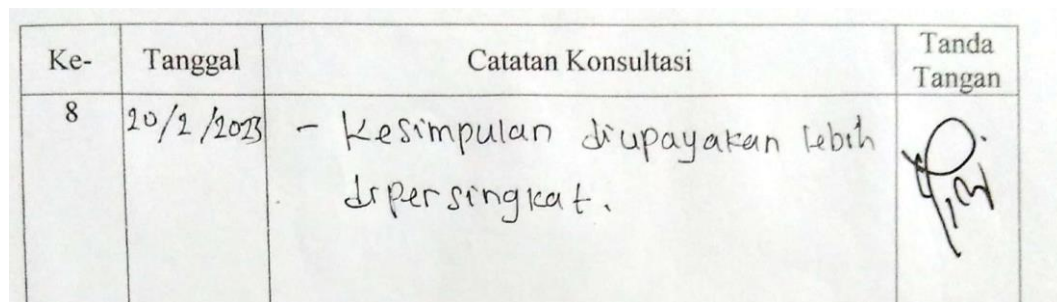 Ke- Tanggal Catatan Konsultasi Tanda Tangan
8 20/2/2023 - Kesimpulan diupayakan lebih
dipersingkat.